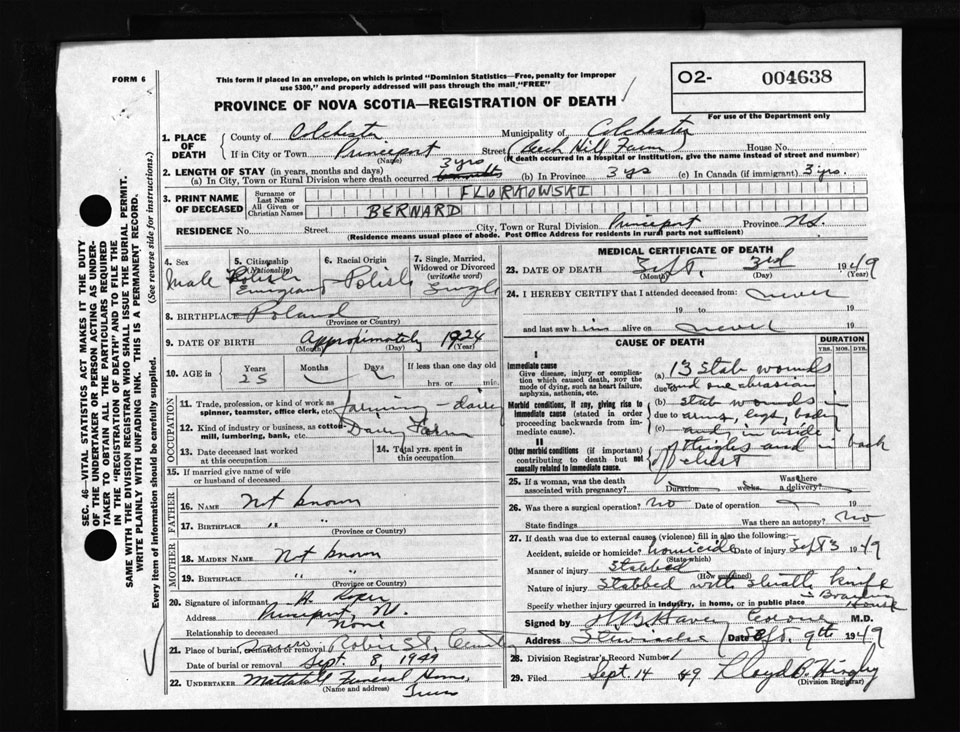 FORM 6
This form if placed in an envelope, on which is printed "Dominion Statistics—Free, penalty for improper
use $300," and properly addressed will pass through the mail "FREE"
O2- 004638
For use of the Department only
PROVINCE OF NOVA SCOTIA—REGISTRATION OF DEATH
1. PLACE OF DEATH
County of Colchester Municipality of Colchester
If in City or Town Princeport Street (Beech Hill Farm) House No.
(Name) (If death occurred in a hospital or institution, give the name instead of street and number)
2. LENGTH OF STAY (in years, months and days)
(a) In City, Town or Rural Division where death occurred 3 yrs (b) In Province 3 yrs (c) In Canada (if immigrant) 3 yrs.
3. PRINT NAME OF DECEASED
Surname or Last Name FLORKOWSKI
All Given or Christian Names BERNARD
RESIDENCE No. Street City, Town or Rural Division Princeport Province N.S.
(Residence means usual place of abode. Post Office Address for residents in rural parts not sufficient)
4. Sex Male
5. Citizenship (Nationality) Polish Emigrant
6. Racial Origin Polish
7. Single, Married, Widowed or Divorced (write the word) Single
8. BIRTHPLACE Poland
(Province or Country)
9. DATE OF BIRTH Approximately 1924
(Month) (Day) (Year)
10. AGE in Years Months Days If less than one day old
25 hrs. or min.
OCCUPATION
11. Trade, profession, or kind of work as spinner, teamster, office clerk, etc. Farming - dairy
12. Kind of industry or business, as cotton mill, lumbering, bank, etc. Dairy Farm
13. Date deceased last worked at this occupation
14. Total yrs. spent in this occupation
15. If married give name of wife or husband of deceased
FATHER
16. NAME Not known
17. BIRTHPLACE " "
(Province or Country)
MOTHER
18. MAIDEN NAME Not known
19. BIRTHPLACE " "
(Province or Country)
20. Signature of informant H.
Address Princeport, N.S.
Relationship to deceased None
21. Place of burial, cremation or removal Truro Robie St. Cemetery
Date of burial or removal Sept. 8, 1949
22. UNDERTAKER Mattatall Funeral Home,
(Name and address) Truro
MEDICAL CERTIFICATE OF DEATH
23. DATE OF DEATH Sept. 3rd 1949
(Month) (Day) (Year)
24. I HEREBY CERTIFY that I attended deceased from never
19 to 19
and last saw him alive on never 19
CAUSE OF DEATH
DURATION
YRS. MOS. DYS.
I
Immediate cause
Give disease, injury or complication which caused death, NOT the mode of dying, such as heart failure, asphyxia, asthenia, etc.
(a) 13 stab wounds
due to and one abrasion
Morbid conditions, if any, giving rise to immediate cause (stated in order proceeding backwards from immediate cause).
(b) stab wounds in
due to arms, legs, body
(c) and in inside
II
Other morbid conditions (if important) contributing to death but not causally related to immediate cause.
of thighs and in back
of chest
25. If a woman, was the death associated with pregnancy? Duration weeks Was there a delivery?
26. Was there a surgical operation? No Date of operation 19
State findings Was there an autopsy? No
27. If death was due to external causes (violence) fill in also the following:—
Accident, suicide or homicide? homicide Date of injury Sept 3 1949
(State which)
Manner of injury Stabbed
(How sustained)
Nature of injury Stabbed with sheath knife
Specify whether injury occurred in industry, in home, or in public place in Boarding House
Signed by Coroner M.D.
Address Stewiacke Date Sept. 9th 1949
28. Division Registrar's Record Number 1
29. Filed Sept. 14 49 Lloyd B.
(Division Registrar)
SEC. 46—VITAL STATISTICS ACT MAKES IT THE DUTY
OF THE UNDERTAKER OR PERSON ACTING AS UNDERTAKER TO OBTAIN ALL THE PARTICULARS REQUIRED
IN THE "REGISTRATION OF DEATH" AND TO FILE THE
SAME WITH THE DIVISION REGISTRAR WHO SHALL ISSUE THE BURIAL PERMIT.
WRITE PLAINLY WITH UNFADING INK. THIS IS A PERMANENT RECORD.
Every item of information should be carefully supplied. (See reverse side for instructions.)